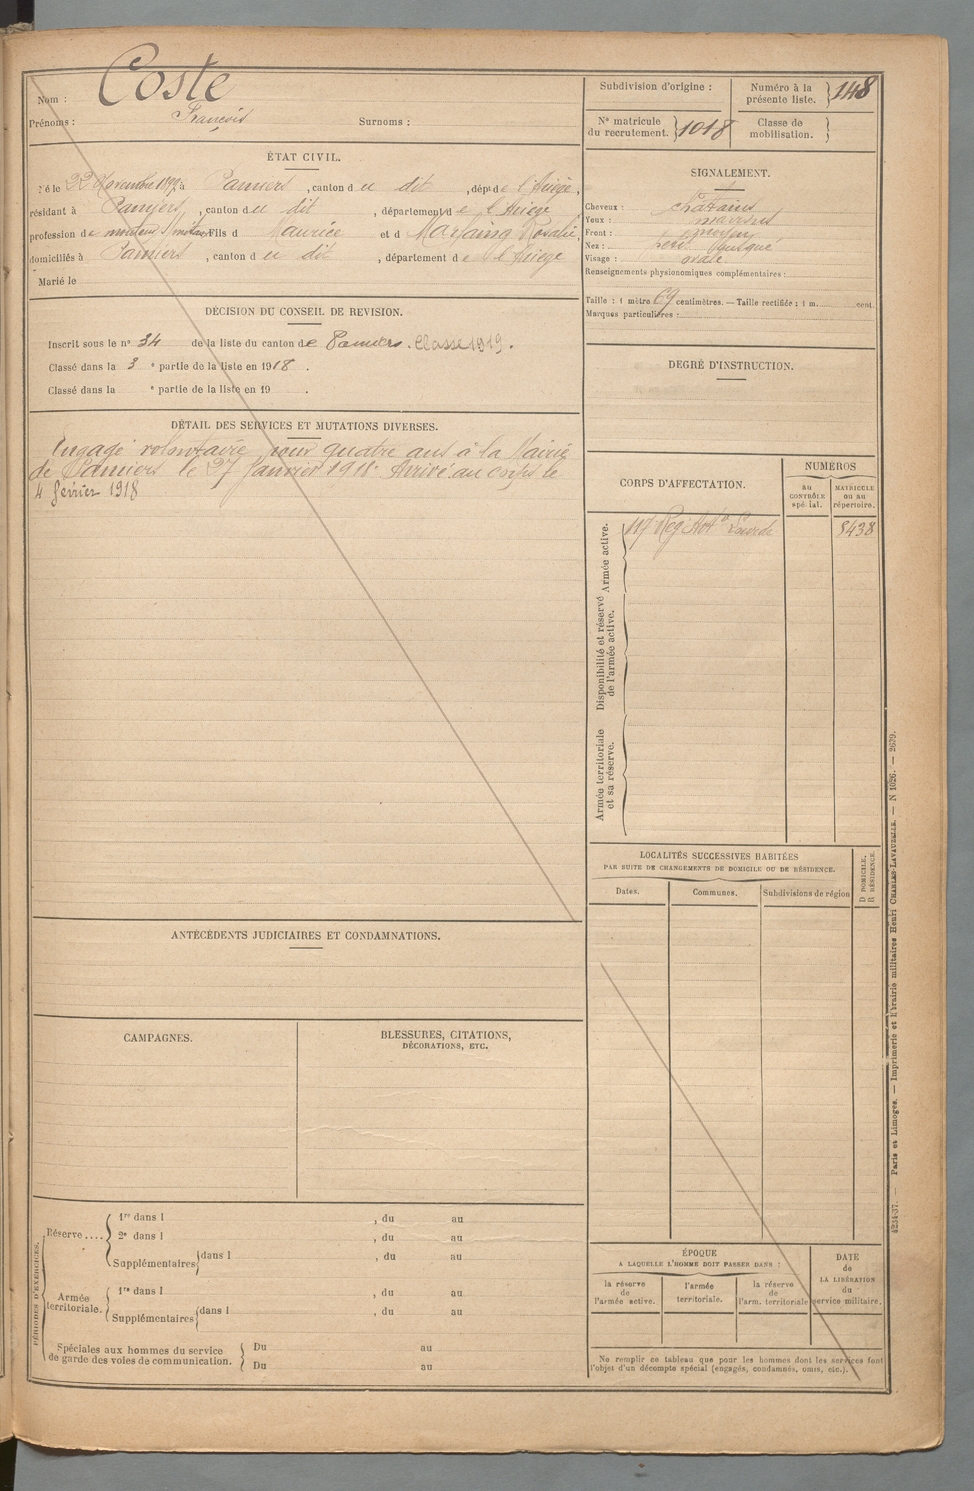 Nom : Coste
Prénoms : François Surnoms :
ÉTAT CIVIL.
Né le 22 Novembre 1899 à Pamiers, canton du dit, dépt de l'Ariège,
résidant à Pamiers, canton du dit, département de l'Ariege
profession de monteur Fils de Maurice et d Marfaing Rosalie,
domiciliés à Pamiers, canton du dit, département de l'Ariege
Marié le
DÉCISION DU CONSEIL DE REVISION.
Inscrit sous le n° 34 de la liste du canton de Pamiers. Classe 1919.
Classé dans la 3 e partie de la liste en 1918.
Classé dans la e partie de la liste en 19 .
DÉTAIL DES SERVICES ET MUTATIONS DIVERSES.
Engagé volontaire pour quatre ans à la Mairie
de Pamiers le 27 Janvier 1918. Arrivé au corps le
4 fevrier 1918
ANTÉCÉDENTS JUDICIAIRES ET CONDAMNATIONS.
CAMPAGNES.
BLESSURES, CITATIONS,
DÉCORATIONS, ETC.
PÉRIODES D'EXERCICES.
Réserve....
1re dans l , du au
2e dans l , du au
Supplémentaires dans l , du au
Armée
territoriale.
1re dans l , du au
Supplémentaires dans l , du au
Spéciales aux hommes du service
de garde des voies de communication.
Du au
Du au
Subdivision d'origine :
Numéro à la
présente liste. 148
N° matricule
du recrutement. 1018
Classe de
mobilisation.
SIGNALEMENT.
Cheveux : chatains
Yeux : marrons
Front : moyen
Nez : busqué
Visage : ovale
Renseignements physionomiques complémentaires :
Taille : 1 mètre 69 centimètres. — Taille rectifiée : 1 m. cent.
Marques particulières :
DEGRÉ D'INSTRUCTION.
CORPS D'AFFECTATION.
NUMÉROS
au
CONTRÔLE
spécial.
MATRICULE
ou au
répertoire.
Armée active.
117 Reg Art ie Lourde 8438
Disponibilité et réserve
de l'armée active.
Armée territoriale
et sa réserve.
LOCALITÉS SUCCESSIVES HABITÉES
PAR SUITE DE CHANGEMENTS DE DOMICILE OU DE RÉSIDENCE.
Dates. Communes. Subdivisions de région
D DOMICILE.
R RÉSIDENCE.
ÉPOQUE
A LAQUELLE L'HOMME DOIT PASSER DANS :
la réserve
de
l'armée active.
l'armée
territoriale.
la réserve
de
l'arm. territoriale
DATE
de
LA LIBÉRATION
du
service militaire.
Ne remplir ce tableau que pour les hommes dont les services font
l'objet d'un décompte spécial (engagés, condamnés, omis, etc.).
4234-37. — Paris et Limoges. — Imprimerie et librairie militaires Henri CHARLES-LAVAUZELLE. — N 1026. — 2639.